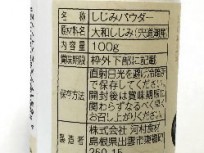 名称 しじみパウダー
原材料名 大和しじみ(宍道湖産
内容量 100g
賞味期限 枠外下部に記載
保存方法 直射日光を避け冷暗所
で保存してください。
開封後は賞味期限に
関わらずなるべく早く
お召し上がりください
製造者 株式会社 河村食材
島根県出雲市東福町
250-15